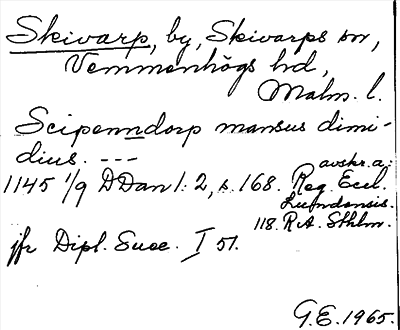 Skivarp, by, Skivarps sn,
Vemmenhögs hd,
Malm. l.
Scipenndorp mansus dimi-
dius. ---
avskr. a.
1145 1/9 DDan 1: 2, s. 168. Reg. Eccl.
Lundensis.
118. RA. Sthlm.
jfr Dipl. Suec. I 51.
G.E. 1965.